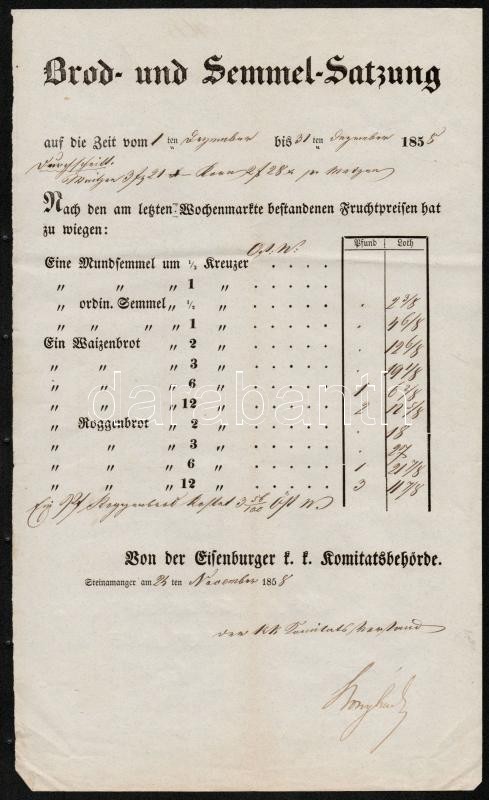 Brod- und Semmel-Satzung
auf die Zeit vom 1 ten Dezember bis 31 ten Dezember 1858
Durchschnitt.
Waitzen 3 f 21 x Korn 2 f 28 x pr Metzen
Nach den am letzten Wochenmarkte bestandenen Fruchtpreisen hat
zu wiegen:
Öst. W:
Pfund Loth
Eine Mundsemmel um ½ Kreuzer . . . .
„ „ „ 1 „ . . . .
„ ordin. Semmel „ ½ „ . . . . . 2 3/8
„ „ „ 1 „ . . . . . 4 6/8
Ein Waizenbrot „ 2 „ . . . . . 12 6/8
„ „ „ 3 „ . . . . . 19 1/8
„ „ „ 6 „ . . . . 1 6 2/8
„ „ „ 12 „ . . . . 2 12 5/8
„ Roggenbrot „ 2 „ . . . . . 18
„ „ „ 3 „ . . . . . 27
„ „ „ 6 „ . . . . 1 21 7/8
„ „ „ 12 „ . . . . 3 11 7/8
Ein Pf Roggenbrod kostet 3 56/100 Öst W
Von der Eisenburger k. k. Komitatsbehörde.
Steinamanger am 25 ten November 1858
der kk Komitats Vorstand
darabanth